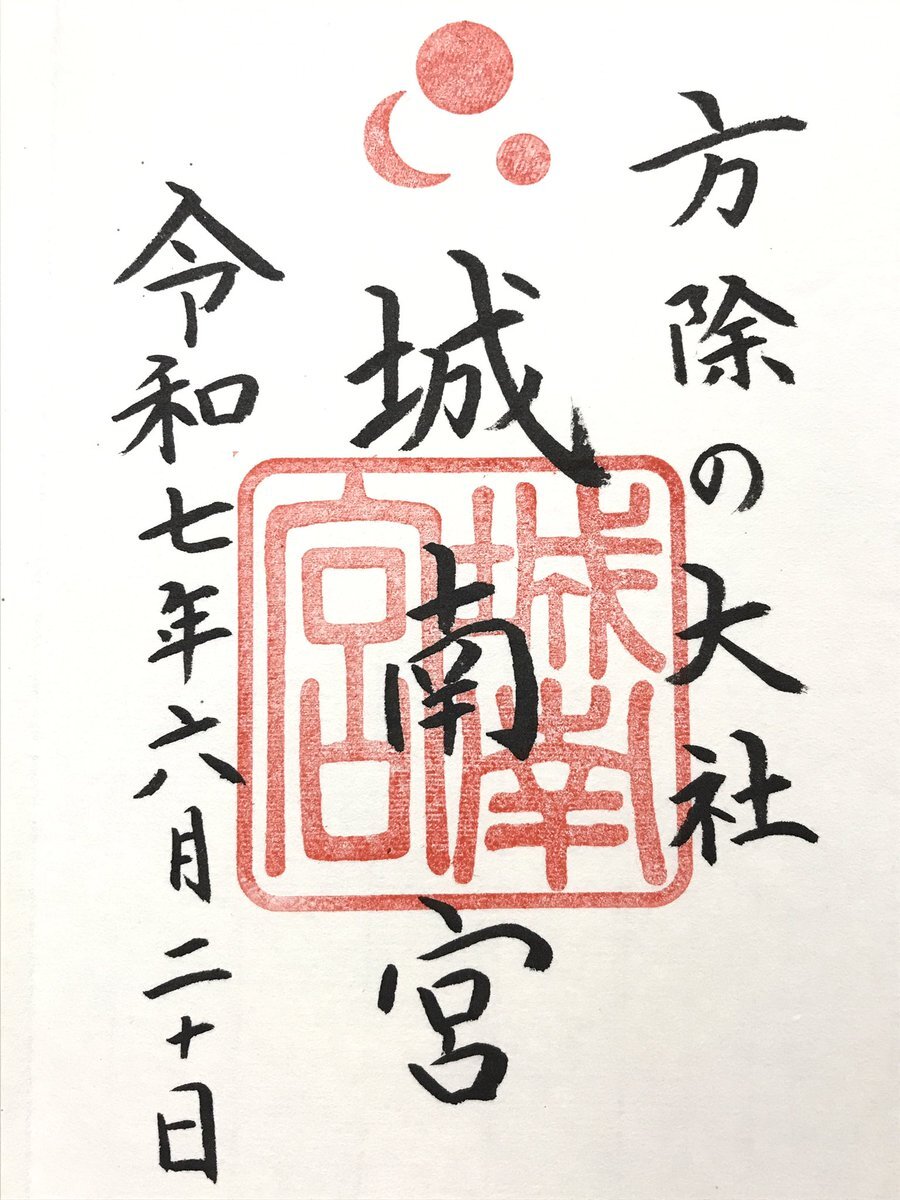 方除の大社
城南宮
城南宮
令和七年六月二十日